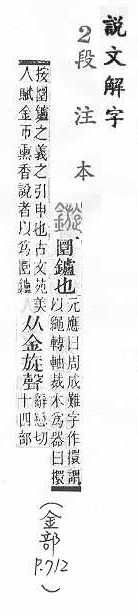 說文解字
2段注本
鏇 圜鑪也 元應曰周成難字作㨯謂
以繩轉軸裁木爲器曰㨯
按圜鑪之義之引申也古文苑美
人賦金帀熏香說者以爲圜鑪 从金旋聲 辭戀切
十四部
(金部
P.712)